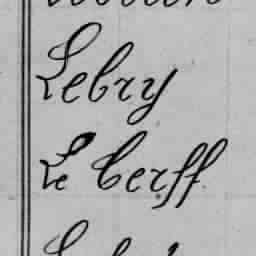 Lebry
Le Cerff